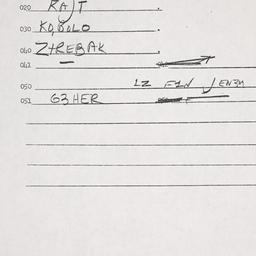 020 RAJT
030 KOBOLO
040 ZTREBAK
042
050 LZ FIN JENZY
052 G3HER